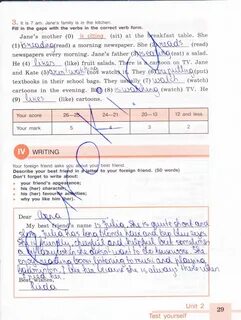 3. It is 7 am. Jane's family is in the kitchen.
Fill in the gaps with the verbs in the correct verb form.
Jane's mother (0) is sitting (sit) at the breakfast table. She
(1) (read) a morning newspaper. She (2) (read)
newspapers every morning. Jane's father (3) (eat) a salad.
He (4) likes (like) fruit salads. There is a cartoon on TV. Jane
and Kate (5) (not watch) it. They (6) (put)
textbooks in their school bags. They usually (7) watch (watch)
cartoons in the evening. (8) is watching (watch) TV. He
(9) likes (like) cartoons.
Your score 26–25 24–21 20–13 12 and less
Your mark 5 3 2
IV WRITING
Your foreign friend asks you about your best friend.
Describe your best friend in a letter to your foreign friend. (50 words)
Don't forget to write about:
• your friend's appearance;
• his (her) character;
• his (her) favourite activities;
• why you like him (her).
Dear
My best friend's name is Julia. She is quite short and
slim. Julia has long blonde hair and big blue eyes.
She is friendly, cheerful and helpful but sometimes
she doesn't want to do homework. She
enjoys reading books, listening to music and playing
badminton. I like her because she is always there when
I need her.
Best wishes,
Unit 2
Test yourself 29